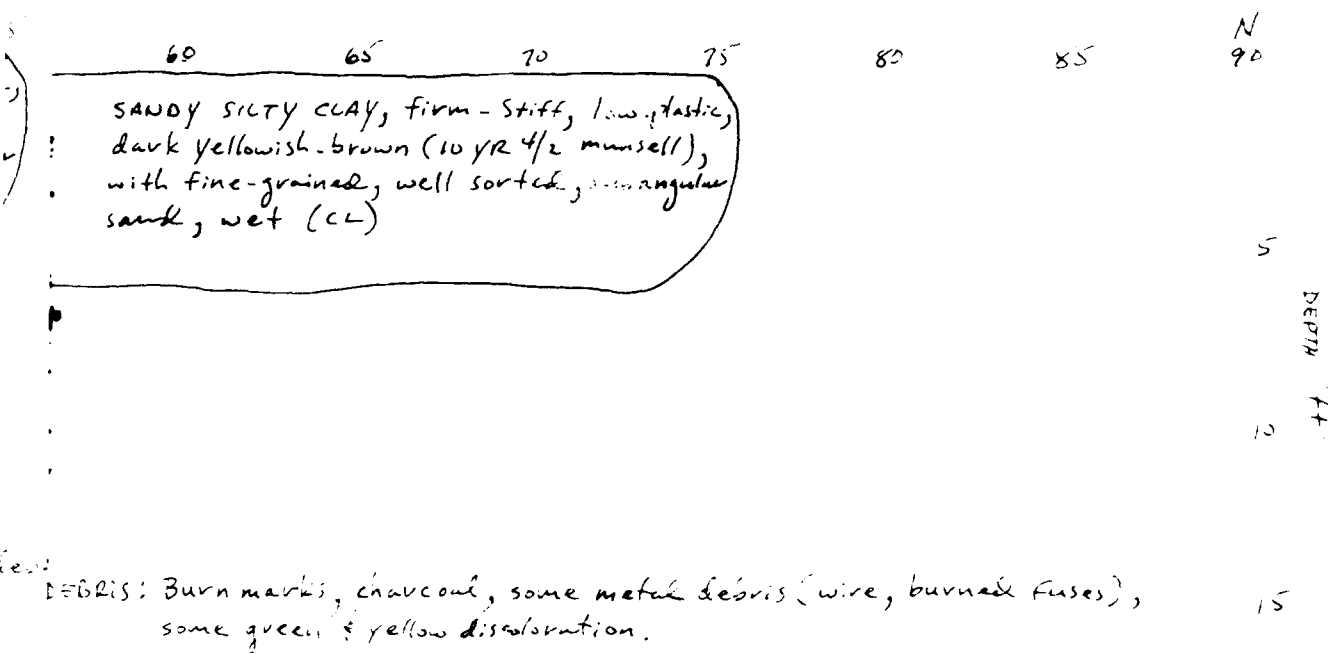 N
60 65 70 75 80 85 90
SANDY SILTY CLAY, firm - Stiff, low plastic,
dark yellowish-brown (10 YR 4/2 munsell),
with fine-grained, well sorted,
sand, wet (CL)
5
DEPTH ft
10
DEBRIS: Burn marks, charcoal, some metal debris (wire, burned fuses),
15
some green & yellow discoloration.